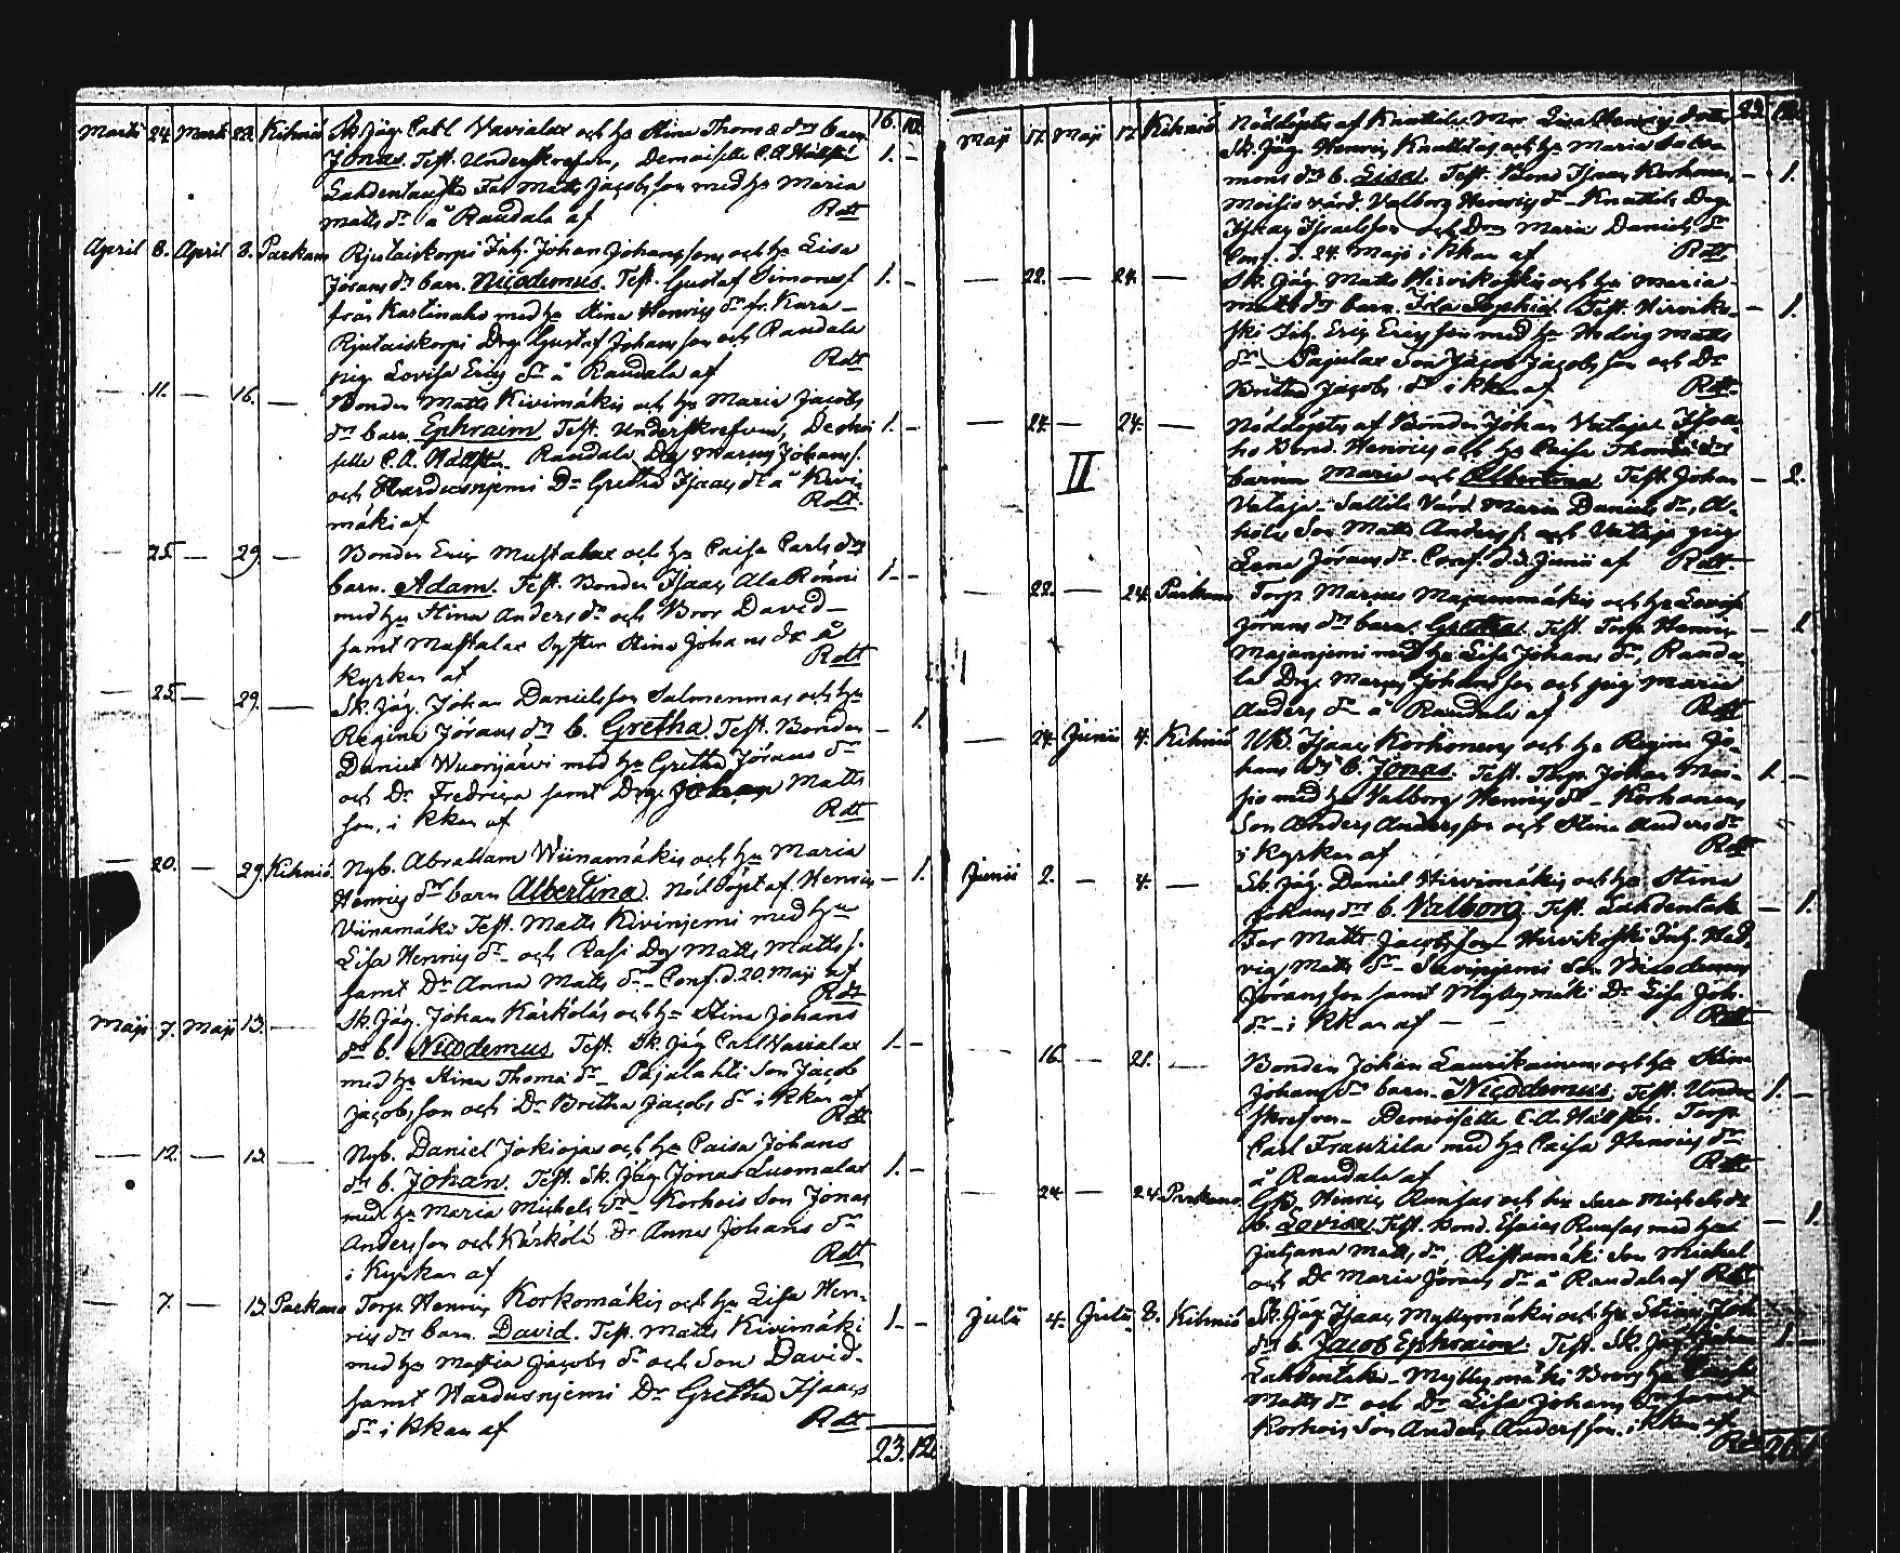 16. 10.
Martii 24. Martii 28. Kihniö Sk. Jäg. Carl Vavialax och h:u Stina Thomæ d:rs barn
Jonas. Test. Underskrefvn, Demoiselle C. A. Hällfst. 1. –
Lahdentausta Far Matts Jacobsson med h:u Maria
Matts d:r å Randala af Rdtt
April 8. April 8. Parkano Rjutaiskorpi Inh. Johan Johanssons och h:u Lisa
Jörans d:rs barn. Nicodemus. Test. Gustaf Simonss. 1. –
från Kartinaho med h:u Stina Henrics d:r fr. Kura –
Rjutaiskorpi Drg. Gustaf Johansson och Randala
pig. Lovisa Erics d:r å Randala af Rdtt
— 11. — 16. — Bonden Matts Kivimäkis och h:u Maria Jacobs
d:rs barn Ephraim Test. Underskrefven, Demoi 1. –
selle C. A. Hällsten. Randala Drg Marcus Johanss.
och Vardusnjemi D:r Gretha Isaacs d:r å Kivi
mäki af Rdtt.
— 25. — 29. — Bonden Eric Mustalax och h:u Caisa Carls d:rs
barn. Adam. Test. Bonden Isaac AlaRönni 1. –
med h:u Stina Anders d:r och Bror David –
samt Mustalax Syster Stina Johans d:r å
kyrkan af Rdtt
— 25. — 29. — Sk. Jäg. Johan Danielsson Salmenmaas och h:u
Regina Jörans d:rs b. Gretha. Test. Bonden – 1.
Daniel Wuorijärvi med h:u Gretha Jörans d:r
och D:r Fredrica samt Drg. Johan Matts
son, i kkan af Rdtt
— 20. — 29. Kihniö. Nyb. Abraham Wiinamäkis och h:u Maria
Henrics d:rs barn Albertina. Nöddöpt af Henrics – 1.
Viinamäki Test. Matts Kivinjemi med h:u
Lisa Henrics d:r – och Rasi Drg Matts Mattss.
samt D:r Anna Matts d:r – Conf. d. 20. Maji af
Rdtt
Maji 7. Maji 13. — Sk. Jäg. Johan Kärkölas och h:u Stina Johans
d:rs b. Nicodemus. Test. Sk. Jäg Carl Vavialax 1. –
med h:u Stina Thomæ d:r – Pajalahti Son Jacob
Jacobsson och D:r Britha Jacobs d:r i kkan af
Rdtt
— 12. — 13. — Nyb. Daniel Jokiojas och h:u Caisa Johans
d:rs b. Johan. Test. Sk. Jäg. Jonas Luomalax 1. –
med h:u Maria Michels d:r – Korhois Son Jonas
Andersson och Kärkölä D:r Anna Johans d:r
i Kyrkan af Rdtt
— 7. — 13. Parkano Torp. Henric Korkomäkis och h:u Lisa Hen-
rics d:rs barn. David. Test. Matts Kivimäki 1. –
med h:u Maria Jacobs d:r och Son David.
samt Wardusnjemi D:r Gretha Isaacs
d:r i kkan af Rdtt
23. 12.
23. 12.
Maji 17. Maji 17. Kihniö Nöddöptes af Knuttila Mor Lisa Henrics dotter
Sk. Jäg. Henric Knuttilas och h:u Maria Salo
mons d:rs b. Lisa. Test. Bond Isaac Korhonen – 1.
Moisio värd. Valborg Henrics d:r – Knuttila Drg.
Iskay Israelsson och D:r Maria Daniels d:r
Conf. d. 24. Maji i kkan af Rdtt
— 22. — 24. — Sk. Jäg. Matts Hirvikoskis och h:u Maria
Matts d:rs barn. Ida Sophia Test. Hirviko- – 1.
ski Inh. Eric Ericsson med h:u Hedvig Matts
d:r – Pajulax Son Jacob Jacobsson och D:r
Britha Jacobs d:r i kkan af Rdtt.
— 24. — 24. — Nöddöptes af Bonden Johan Vataja Isoa
ho Bond. Henrics och h:u Caisa Thomæ d:rs
II barnen Maria och Albertina. Test. Johan – 2.
Vataja – Sallila Värd. Maria Daniels d:r, A-
hola Son Matts Anderss. och Vataja pig
Lena Jörans d:r. Conf. d. 3. Junii af Rdtt.
— 22. — 24. Parkano Torp. Marcus Majanmäkis och h:u Lovisa
Jörans d:rs barn. Gretha. Test. Torp. Henric – 1.
Majanjemi med h:u Lisa Johans d:r, Randa
la Drg. Marcus Johansson och pig. Maria
Anders d:r å Randala af Rdtt
— 24. Junii 4. Kihniö Isaac Korhonens och h:u Regina Jo-
hans d:rs b. Jonas. Test. Torp. Johan Moi- 1. –
sio med h:u Valborg Henrics d:r – Korhonens
Son Anders Andersson och Stina Anders d:r
i kyrkan af Rdtt
Junii 2. — 4. — Sk. Jäg. Daniel Hirvimäkis och h:u Stina
Johans d:rs b. Valborg. Test. Lahdentak – 1.
Far Matts Jacobsson – Hirvikoski Inh. Hed
vig Matts d:r – Savinjemi Son Nicodemus
Jöransson samt Myllymäki D:r Lisa Joh.
d:r – i kkan af – – Rdtt
— 16. — 21. — Bonden Johan Laurikainens och h:u Stina
Johans d:rs barn. Nicodemus. Test. Under 1. –
skrefven – Demoiselle C. A. Hällsten. Torp.
Carl Franzila med h:u Caisa Henrics d:r
å Randala af Rdtt
— 24. — 24. Parkano. Henric Ruusas och h:u Sara Michels d:rs
b. Lovisa. Test. Bond. Esaias Ruusas med h:u – 1.
Juljana Matts d:r, Ristamäki Son Michel
och D:r Maria Jörans d:r å Randala af Rdtt
Julii 4. Julii 8. Kihniö Sk. Jäg. Isaac Myllymäkis och h:u Stina Joh.
d:rs b. Jacob Ephraim. Test. Sk. Jäg. Johan 1. –
Lahdentaka – Myllymäki Bror h:u
Matts d:r och D:r Lisa Johans d:r samt
Korhois Son Anders Andersson. i kkan af
Rdtt